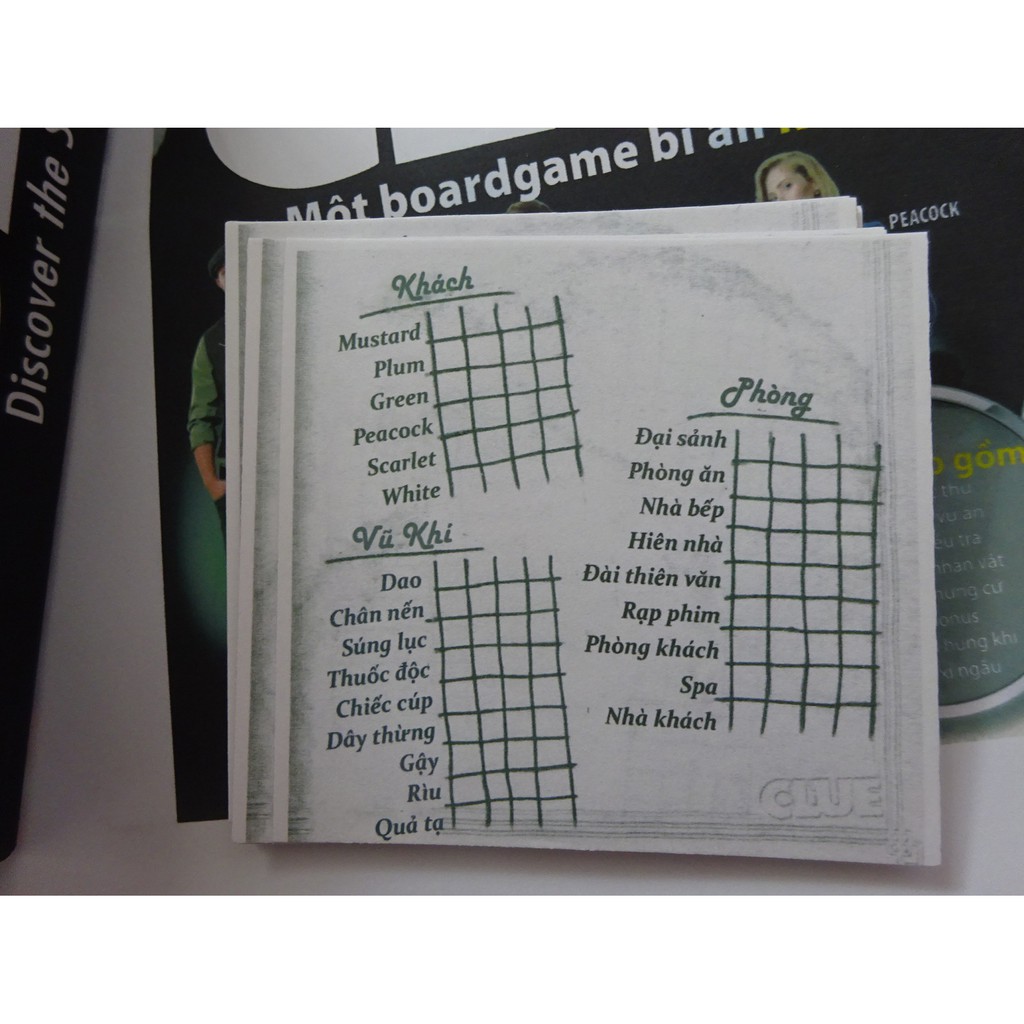 Discover the
Một boardgame bí ẩn
PEACOCK
Khách
Mustard
Plum
Green
Peacock
Scarlet
White
Vũ Khí
Dao
Chân nến
Súng lục
Thuốc độc
Chiếc cúp
Dây thừng
Gậy
Rìu
Quả tạ
Phòng
Đại sảnh
Phòng ăn
Nhà bếp
Hiên nhà
Đài thiên văn
Rạp phim
Phòng khách
Spa
Nhà khách
CLUE
gồm
thư
vụ án
nhân vật
hung khí
xí ngầu